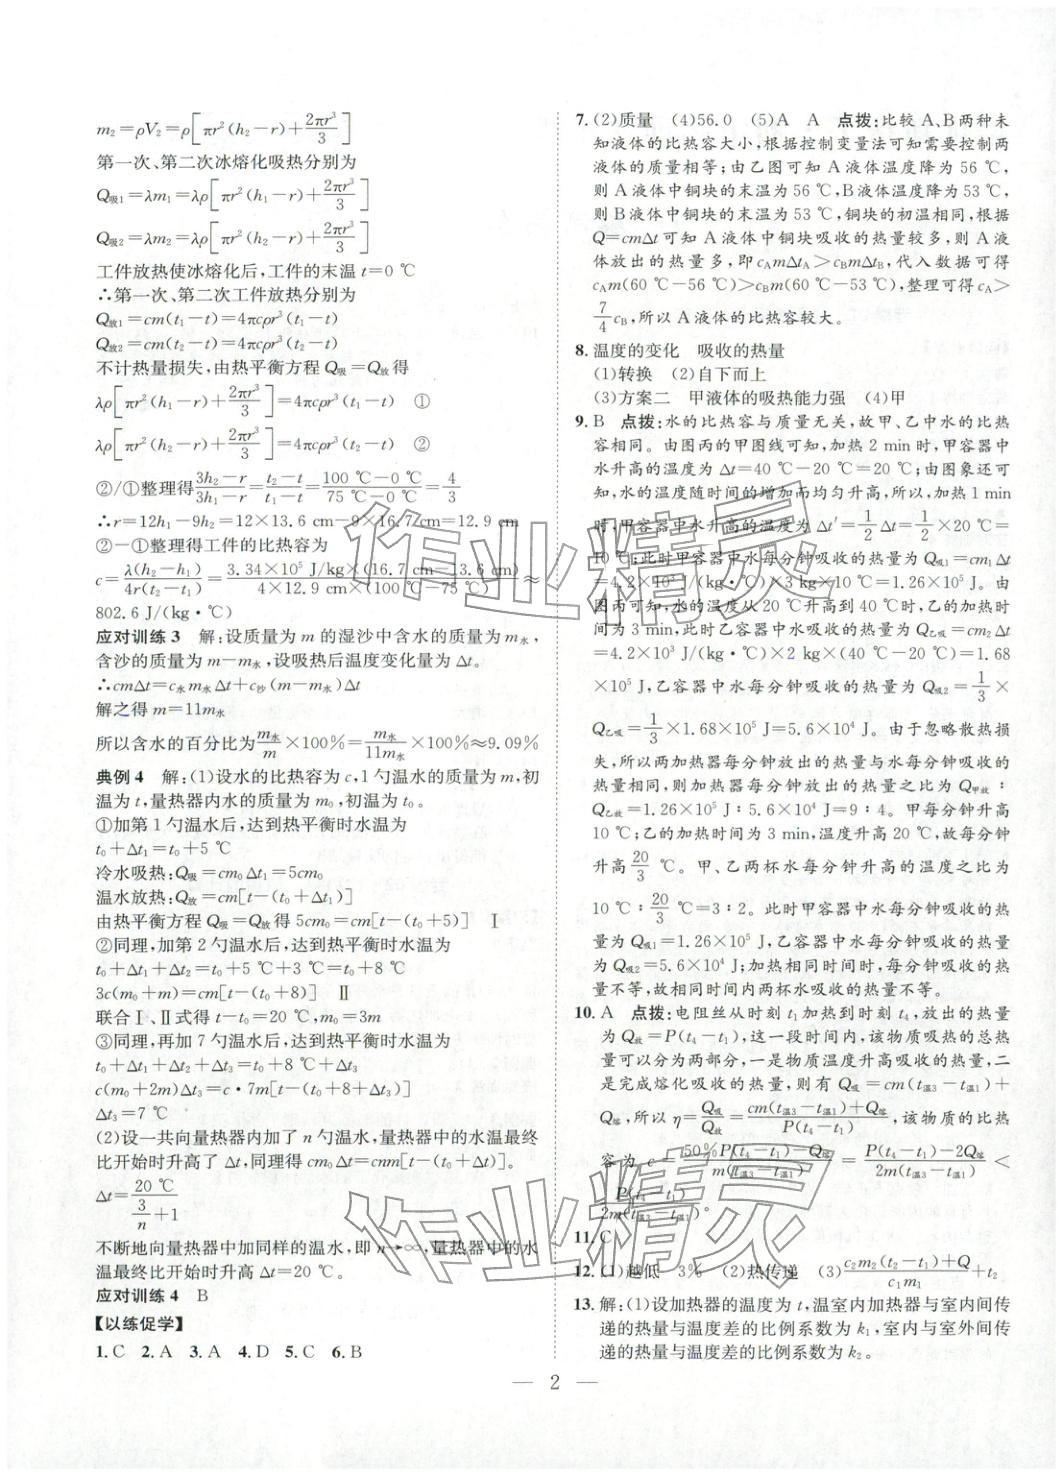 m₂=ρV₂=ρ[πr²(h₂−r)+2πr³/3]
第一次、第二次冰熔化吸热分别为
Q吸1=λm₁=λρ[πr²(h₁−r)+2πr³/3]
Q吸2=λm₂=λρ[πr²(h₂−r)+2πr³/3]
工件放热使冰熔化后,工件的末温 t=0 ℃
∴第一次、第二次工件放热分别为
Q放1=cm(t₁−t)=4πcρr³(t₁−t)
Q放2=cm(t₂−t)=4πcρr³(t₂−t)
不计热量损失,由热平衡方程 Q吸=Q放得
λρ[πr²(h₁−r)+2πr³/3]=4πcρr³(t₁−t) ①
λρ[πr²(h₂−r)+2πr³/3]=4πcρr³(t₂−t) ②
②/①整理得(3h₂−r)/(3h₁−r)=(t₂−t)/(t₁−t)=(100 ℃−0 ℃)/(75 ℃−0 ℃)=4/3
∴r=12h₁−9h₂=12×13.6 cm−9×16.7 cm=12.9 cm
②−①整理得工件的比热容为
c=λ(h₂−h₁)/4r(t₂−t₁)=3.34×10⁵ J/kg×(16.7 cm−13.6 cm)/4×12.9 cm×(100 ℃−75 ℃)≈
802.6 J/(kg·℃)
应对训练 3 解:设质量为 m 的湿沙中含水的质量为 m水,
含沙的质量为 m−m水,设吸热后温度变化量为 Δt。
∴cmΔt=c水m水Δt+c沙(m−m水)Δt
解之得 m=11m水
所以含水的百分比为m水/m×100%=m水/11m水×100%≈9.09%
典例 4 解:(1)设水的比热容为 c,1 勺温水的质量为 m,初
温为 t,量热器内水的质量为 m₀,初温为 t₀。
①加第 1 勺温水后,达到热平衡时水温为
t₀+Δt₁=t₀+5 ℃
冷水吸热:Q吸=cm₀Δt₁=5cm₀
温水放热:Q放=cm[t−(t₀+Δt₁)]
由热平衡方程 Q吸=Q放得 5cm₀=cm[t−(t₀+5)] Ⅰ
②同理,加第 2 勺温水后,达到热平衡时水温为
t₀+Δt₁+Δt₂=t₀+5 ℃+3 ℃=t₀+8 ℃
3c(m₀+m)=cm[t−(t₀+8)] Ⅱ
联合Ⅰ、Ⅱ式得 t−t₀=20 ℃,m₀=3m
③同理,再加 7 勺温水后,达到热平衡时水温为
t₀+Δt₁+Δt₂+Δt₃=t₀+8 ℃+Δt₃
c(m₀+2m)Δt₃=c·7m[t−(t₀+8+Δt₃)]
Δt₃=7 ℃
(2)设一共向量热器内加了 n 勺温水,量热器中的水温最终
比开始时升高了 Δt,同理得 cm₀Δt=cnm[t−(t₀+Δt)]。
Δt=20 ℃/(3/n+1)
不断地向量热器中加同样的温水,即 n→∞,量热器中的水
温最终比开始时升高 Δt=20 ℃。
应对训练 4 B
【以练促学】
1.C 2.A 3.A 4.D 5.C 6.B
7.(2)质量 (4)56.0 (5)A A 点拨:比较 A、B两种未
知液体的比热容大小,根据控制变量法可知需要控制两
液体的质量相等;由乙图可知 A 液体温度降为 56 ℃,
则 A 液体中铜块的末温为 56 ℃,B液体温度降为 53 ℃,
则 B 液体中铜块的末温为 53 ℃,铜块的初温相同,根据
Q=cmΔt 可知 A 液体中铜块吸收的热量较多,则 A 液
体放出的热量多,即 cAmΔtA>cBmΔtB,代入数据可得
cAm(60 ℃−56 ℃)>cBm(60 ℃−53 ℃),整理可得 cA>
7/4cB,所以 A 液体的比热容较大。
8.温度的变化 吸收的热量
(1)转换 (2)自下而上
(3)方案二 甲液体的吸热能力强 (4)甲
9.B 点拨:水的比热容与质量无关,故甲、乙中水的比热
容相同。由图丙的甲图线可知,加热 2 min 时,甲容器中
水升高的温度为 Δt=40 ℃−20 ℃=20 ℃;由图象还可
知,水的温度随时间的增加而均匀升高,所以,加热 1 min
时,甲容器中水升高的温度为 Δt′=1/2Δt=1/2×20 ℃=
10 ℃;此时甲容器中水每分钟吸收的热量为 Q吸1=cm₁Δt
=4.2×10³ J/(kg·℃)×3 kg×10 ℃=1.26×10⁵ J。由
图丙知,水的温度从 20 ℃升高到 40 ℃时,乙的加热时
间为 3 min,此时乙容器中水吸收的热量为 Q乙吸=cm₂Δt
=4.2×10³ J/(kg·℃)×2 kg×(40 ℃−20 ℃)=1.68
×10⁵ J,乙容器中水每分钟吸收的热量为 Q吸2=1/3×
Q乙吸=1/3×1.68×10⁵ J=5.6×10⁴ J。由于忽略散热损
失,所以两加热器每分钟放出的热量与水每分钟吸收的热量
相同,则加热器每分钟放出的热量之比为 Q甲放:
Q乙放=1.26×10⁵ J:5.6×10⁴ J=9:4。甲每分钟升高
10 ℃;乙的加热时间为 3 min,温度升高 20 ℃,故每分钟
升高20/3 ℃。甲、乙两杯水每分钟升高的温度之比为
10 ℃:20/3 ℃=3:2。此时甲容器中水每分钟吸收的热
量为 Q吸1=1.26×10⁵ J,乙容器中水每分钟吸收的热量
为 Q吸2=5.6×10⁴ J;加热相同时间时,每分钟吸收的热
量不等,故相同时间内两杯水吸收的热量不等。
10.A 点拨:电阻丝从时刻 t₁加热到时刻 t₄,放出的热量
为 Q放=P(t₄−t₁),这一段时间内,该物质吸热的总热
量可以分为两部分,一是物质温度升高吸收的热量,二
是完成熔化吸收的热量,则有 Q吸=cm(t温3−t温1)+
Q熔,所以 η=Q吸/Q放=cm(t温3−t温1)+Q熔/P(t₄−t₁),该物质的比热
容为 c=50%P(t₄−t₁)−Q熔/m(t温3−t温1)=P(t₄−t₁)−2Q熔/2m(t温3−t温1)<
P(t₄−t₁)/2m(t温3−t温1)。
11.C
12.(1)越低 3% (2)热传递 (3)c₂m₂(t₂−t₁)+Q/c₁m₁+t₂
13.解:(1)设加热器的温度为 t,温室内加热器与室内间传
递的热量与温度差的比例系数为 k₁,室内与室外间传
递的热量与温度差的比例系数为 k₂。
— 2 —
作业精灵
作业精灵